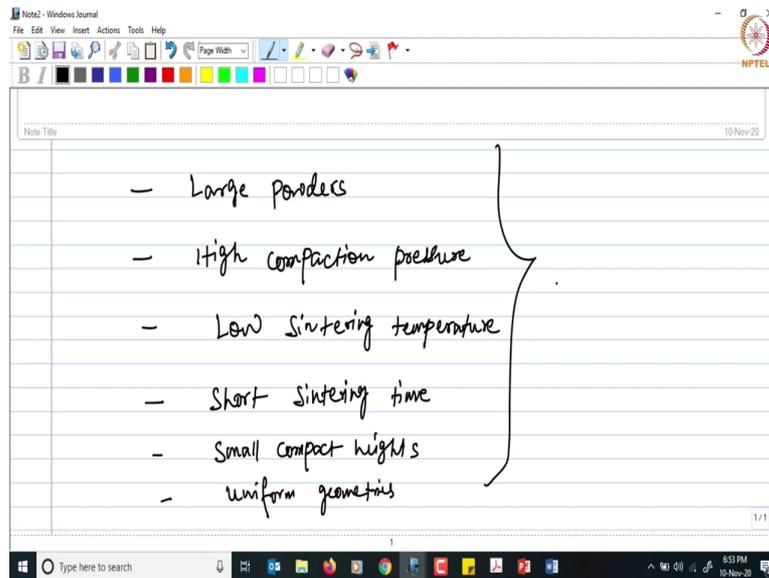 Note2 - Windows Journal
File Edit View Insert Actions Tools Help
Page Width
NPTEL
B I
Note Title
10-Nov-20
- Large powders
- High compaction pressure
- Low sintering temperature
- Short sintering time
- Small compact heights
- uniform geometries
1/1
1
Type here to search
6:53 PM
10-Nov-20